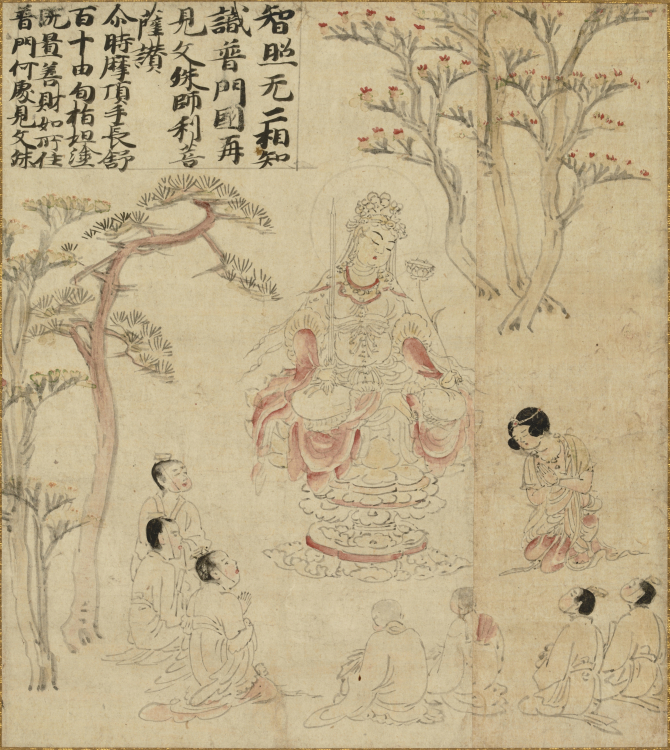 智照无二相知
識普門國再
見文殊師利菩
薩讚
尒時摩頂手長舒
百十由旬坦塗
既善財如所住
普門何處見文殊